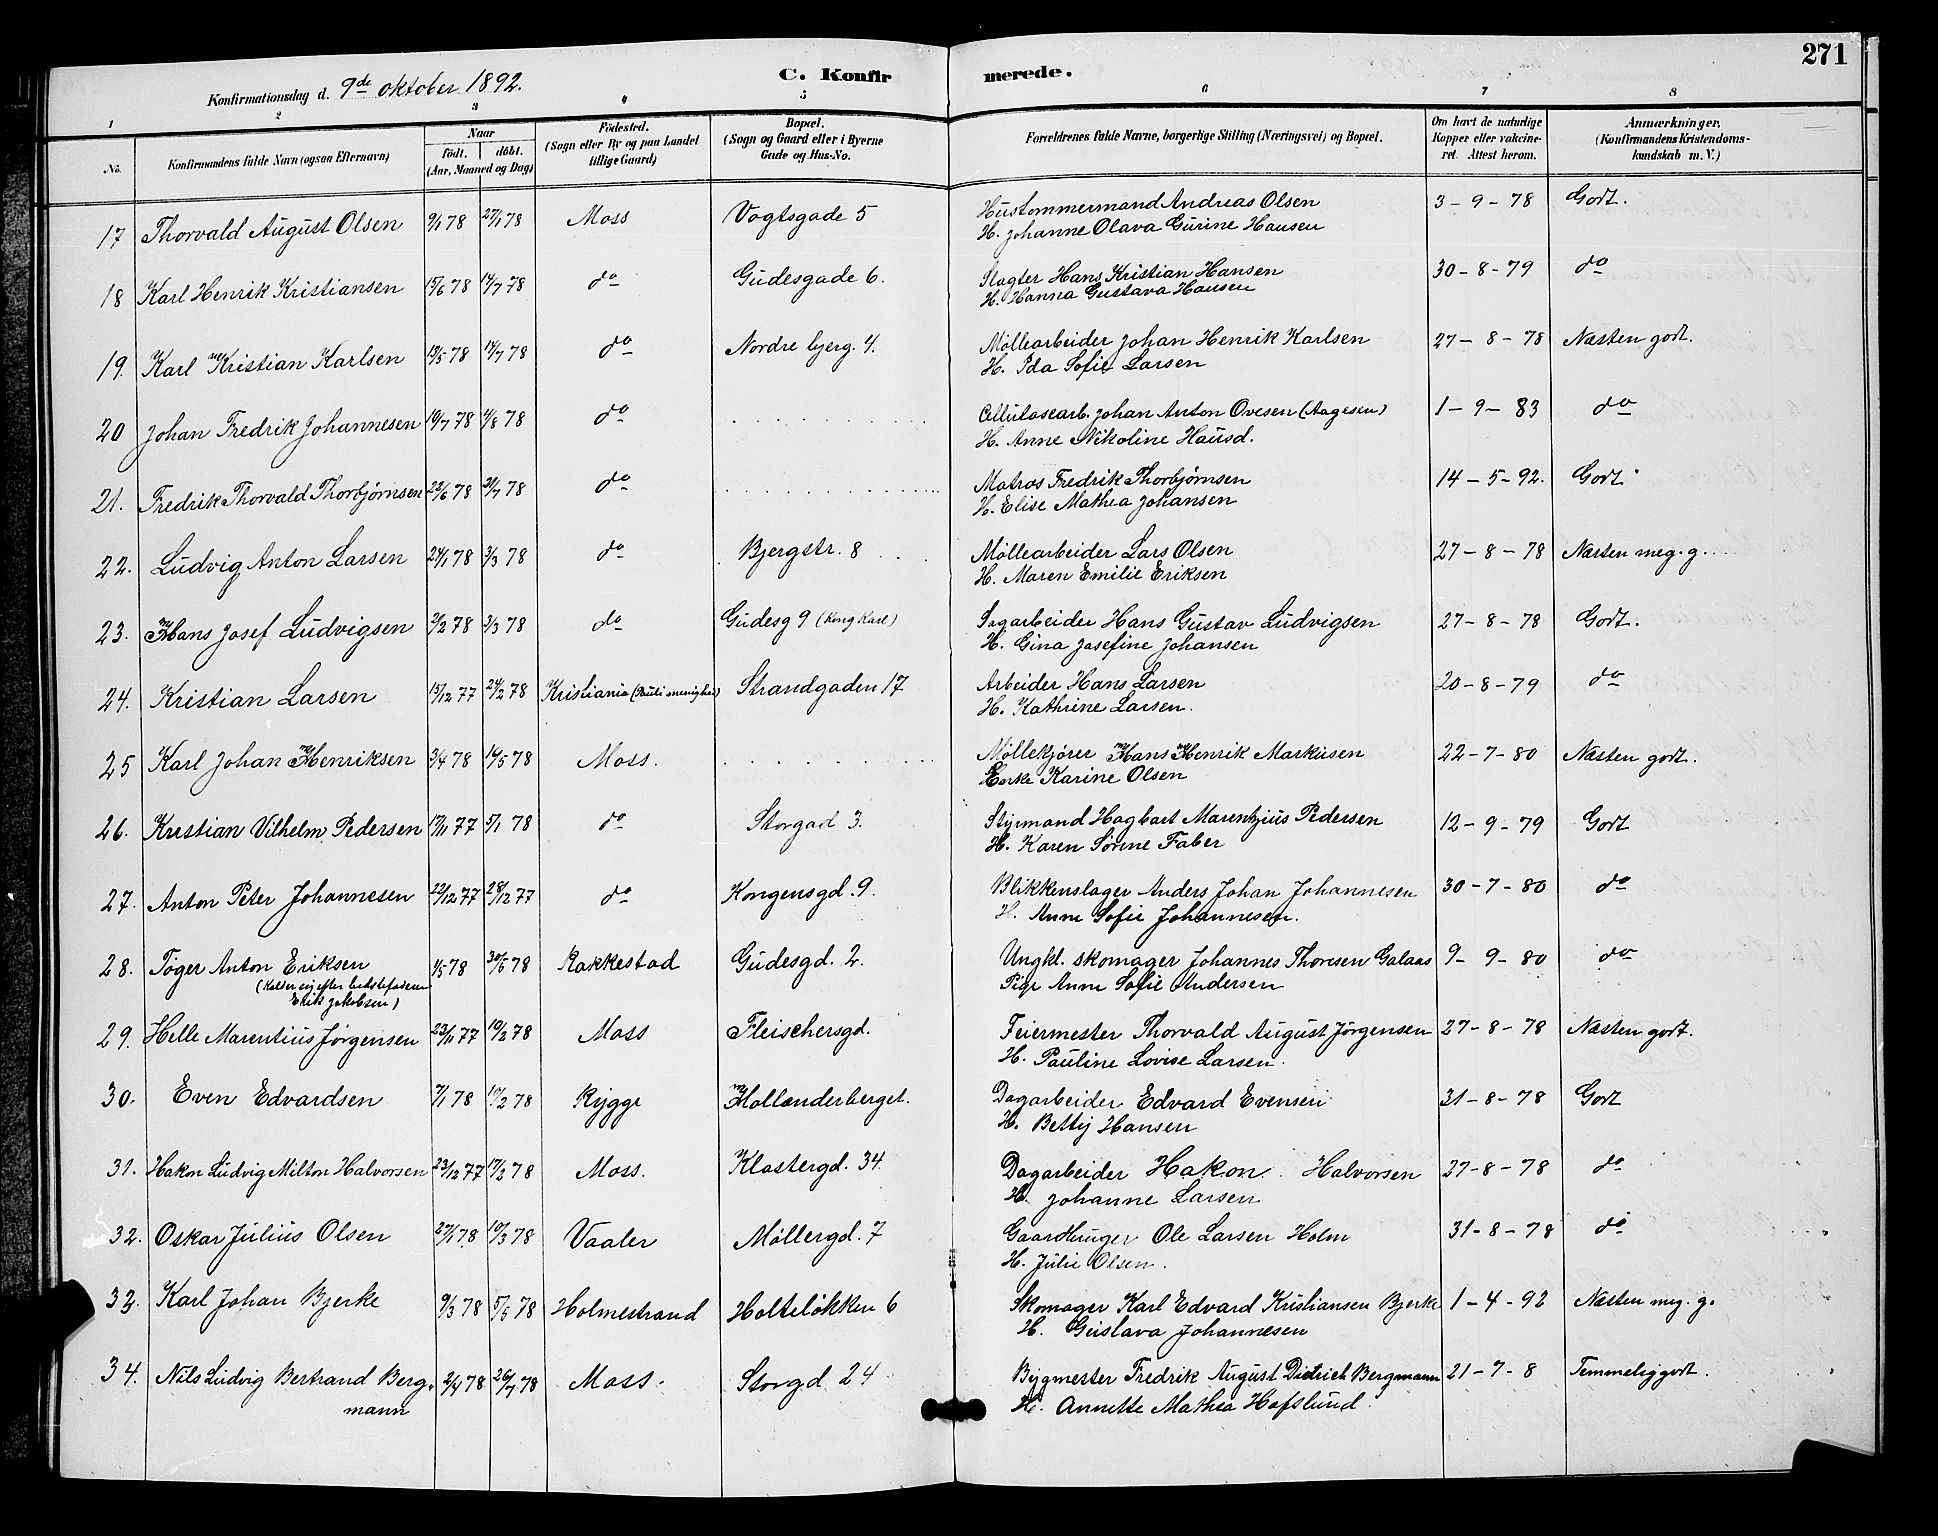 271
C. Konfirmerede.
Konfirmationsdag d. 9de oktober 1892.
1 2 3 4 5 6 7 8
No. Konfirmandens fulde Navn (ogsaa Efternavn) Naar født. døbt. (Aar, Maaned og Dag) Fødested. (Sogn eller By og paa Landet tillige Gaard) Bopæl. (Sogn og Gaard eller i Byerne Gade og Hus-No. Forældrenes fulde Navne, borgerlige Stilling (Næringsvei) og Bopæl. Om havt de naturlige Kopper eller vakcineret. Attest herom. Anmærkninger. (Konfirmandens Kristendomskundskab m. V.)
17 Thorvald August Olsen 9/1 78 27/1 78 Moss Vogtsgade 5 Hustømmermand Andreas Olsen 3-9-78 Godt.
H. Johanne Olava Gurine Hansen
18 Karl Henrik Kristiansen 15/6 78 14/7 78 do Gudesgade 6. Slagter Hans Kristian Hansen 30-8-79 do
H. Hanna Gustava Hansen
19. Karl Kristian Karlsen 19/5 78 14/7 78 do Nordre bjerg. 4. Møllearbeider Johan Henrik Karlsen 27-8-78 Næsten godt.
H. Ida Sofie Larsen
20 Johan Fredrik Johannesen 19/7 78 4/8 78 do Cellulosearb. Johan Anton Ovesen (Aagesen) 1-9-83 do
H. Anne Nikoline Hausd.
21. Fredrik Thorvald Thorbjørnsen 22/6 78 21/7 78 do Matros Fredrik Thorbjørnsen 14-5-92. Godt
H. Elise Mathea Johansen
22. Ludvig Anton Larsen 24/1 78 3/3 78 do Bjergstr. 8 Møllearbeider Lars Olsen 27-8-78 Næsten meg. g.
H. Maren Emilie Eriksen
23. Hans Josef Ludvigsen 2/2 78 3/3 78 do Gudesg 9 (Kong Karl) Sagarbeider Hans Gustav Ludvigsen 27-8-78 Godt.
H. Gina Josefine Johansen
24. Kristian Larsen 15/12 77 24/2 78 Kristiania (Pauli menighed) Strandgaden 17 Arbeider Hans Larsen 20-8-79 do
H. Kathrine Larsen.
25 Karl Johan Henriksen 3/4 78 19/5 78 Moss. Møllekjører Hans Henrik Markusen 22-7-80 Næsten godt.
Enke Karine Olsen
26. Kristian Vilhelm Pedersen 17/11 77 5/1 78 do Storgad 3. Styrmand Hagbart Marentzius Pedersen 12-9-79 Godt
H. Karen Sørine Faber
27. Anton Peter Johannesen 22/12 77 28/12 77 do Kongensgd. 9. Blikkenslager Anders Johan Johannesen 30-7-80 do
H. Anne Sofie Johannesen.
28. Tøger Anton Eriksen 1/5 78 30/5 78 Rakkestad Gudesgd. 2. Ungkl. skomager Johannes Thoresen Galaas 9-9-80 do
(Kalder sig efter bedstefaderen Erik Jakobsen) Pige Anne Sofie Andersen
29. Helle Marentius Jørgensen 23/11 77 10/2 78 Moss Fleischersgd. Feiermester Thorvald August Jørgensen 27-8-78 Næsten godt.
H. Pauline Lovise Larsen
30. Even Edvardsen 7/1 78 17/2 78 Rygge Hollenderberget. Dagarbeider Edvard Evensen 31-8-78 Godt
H. Betty Hansen
31. Hakon Ludvig Milton Halvorsen 23/12 77 17/3 78 Moss. Klostergd. 34. Dagarbeider Hakon Halvorsen 27-8-78 do
H. Johanne Larsen
32. Oskar Julius Olsen 27/1 78 10/3 78 Vaaler Møllergd. 7 Gaardbruger Ole Larsen Holm 31-8-78 do
H. Julie Olsen.
33. Karl Johan Bjerke 9/3 78 5/5 78 Holmestrand Holteløkken 6 Skomager Karl Edvard Kristiansen Bjerke 1-4-92 Næsten meg. g.
H. Gustava Johannesen
34. Nils Ludvig Bertrand Bergmann 2/4 78 26/7 78 Moss. Storgd 24 Bygmester Fredrik August Dietrich Bergmann 21-7-8 Temmelig godt.
H. Annette Mathea Hafslund.